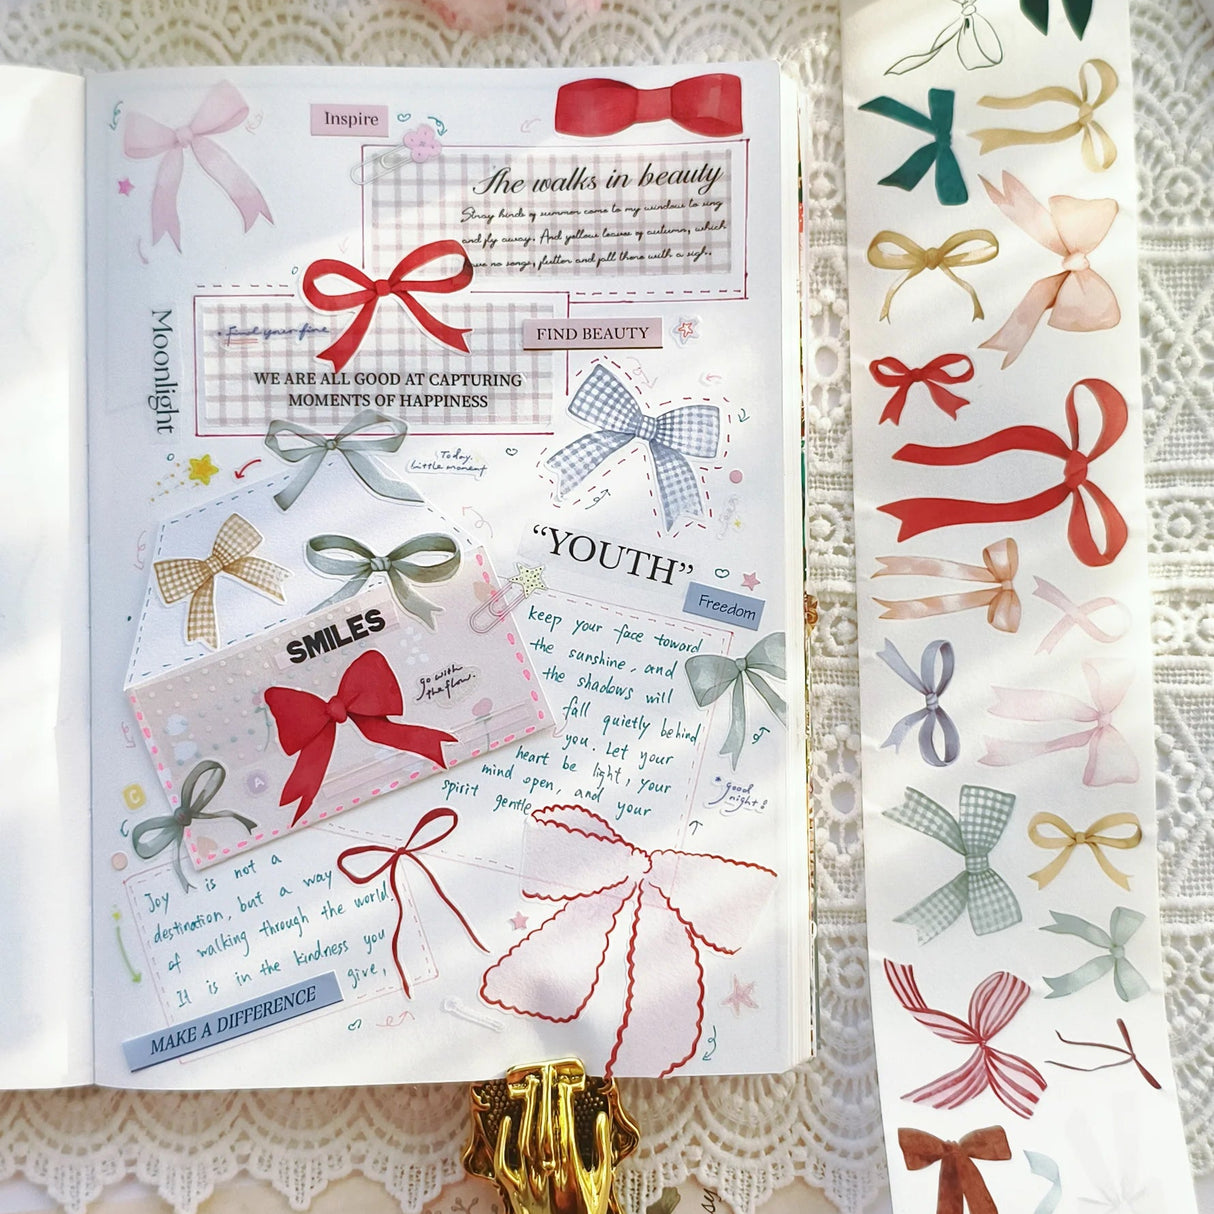 Inspire
The walks in beauty
Stray birds of summer come to my window to sing
and fly away. And yellow leaves of autumn, which
have no songs, flutter and fall there with a sigh.
• Find your fire
FIND BEAUTY
WE ARE ALL GOOD AT CAPTURING
MOMENTS OF HAPPINESS
Moonlight
Today.
little moment
"YOUTH"
Freedom
SMILES
go with
the flow.
keep your face toward
the sunshine, and
the shadows will
fall quietly behind
you. Let your
heart be light, your
mind open, and your
spirit gentle
* good
night!
C
A
Joy is not a
destination, but a way
of walking through the world
It is in the kindness you
give,
MAKE A DIFFERENCE